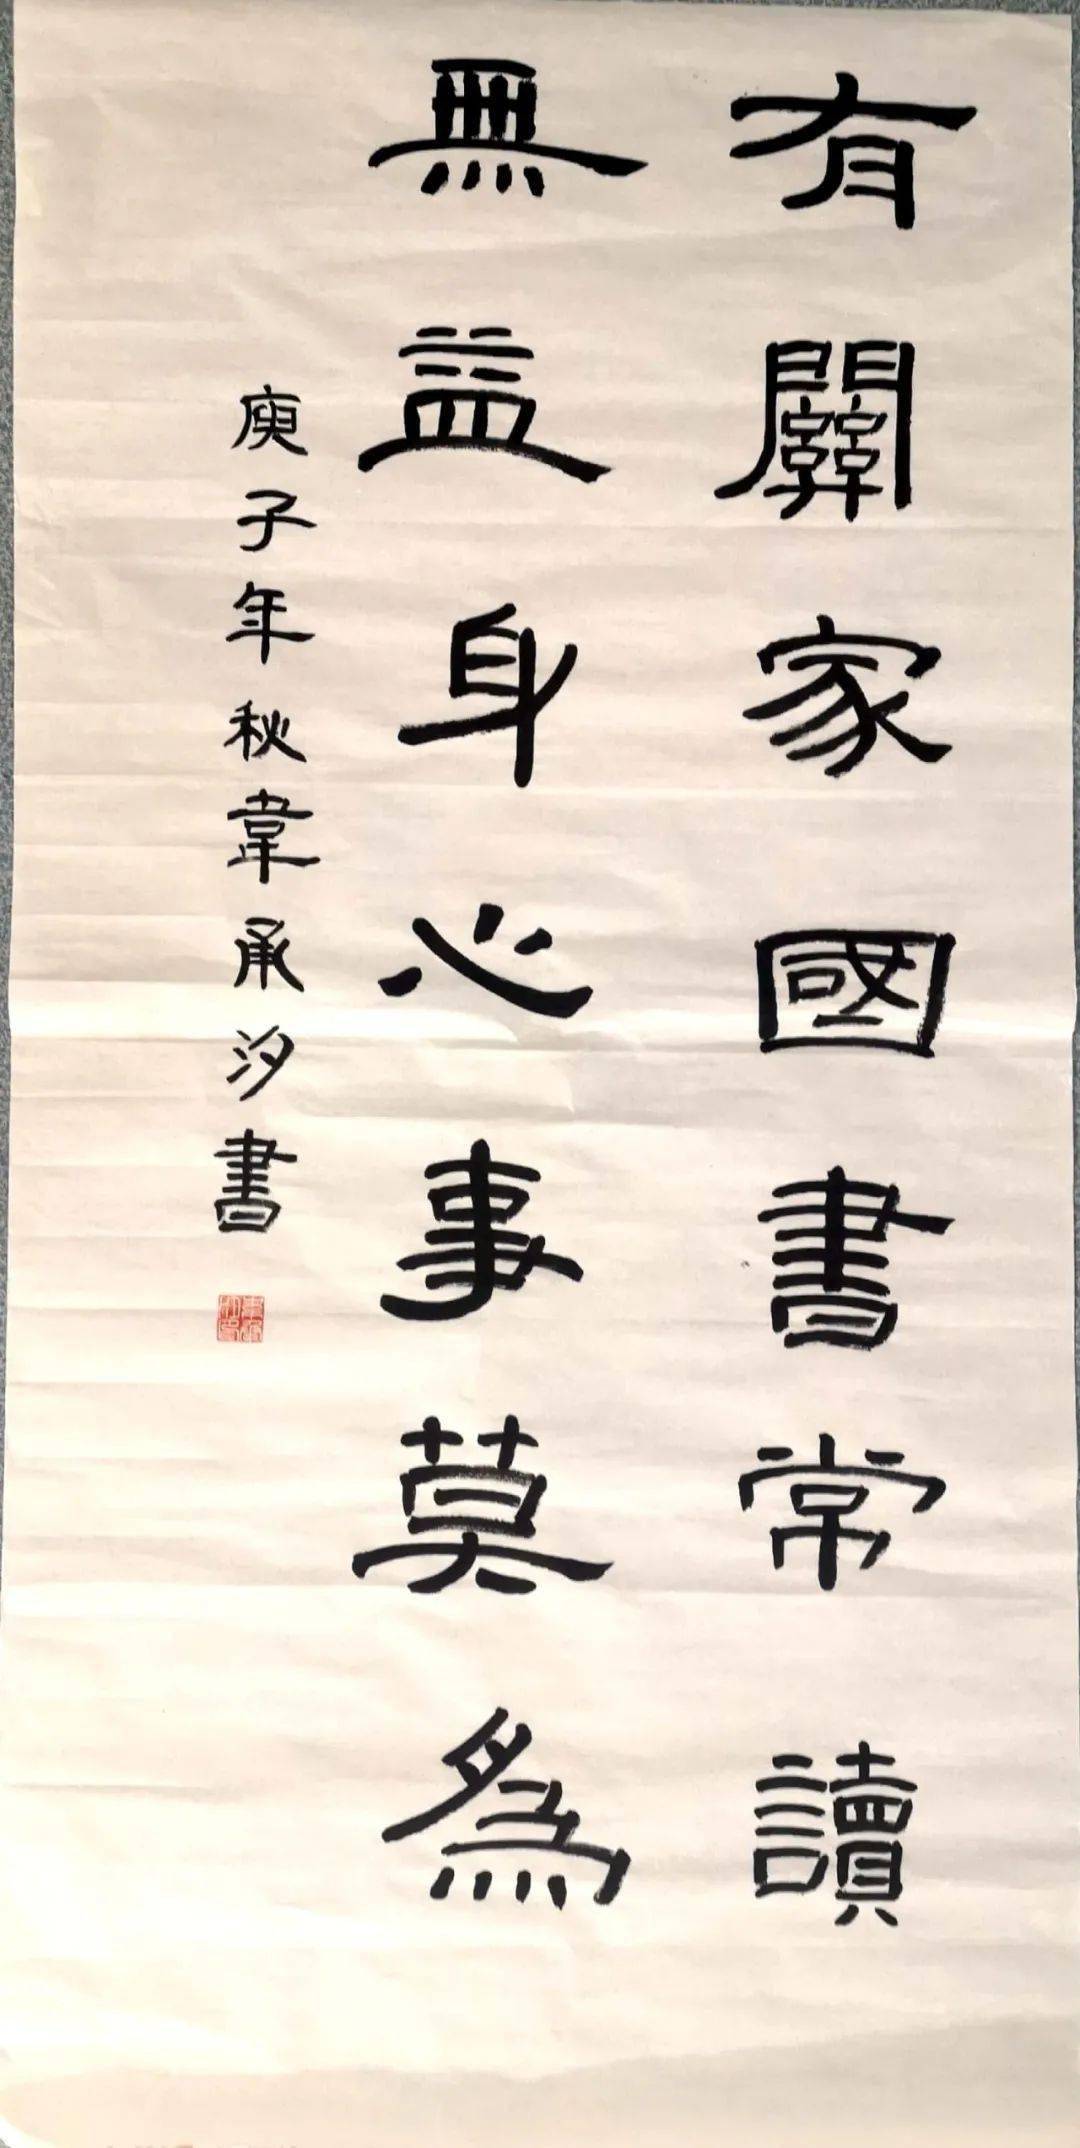 有關家國書常讀
無益身心事莫為
庚子年秋韋承汐書